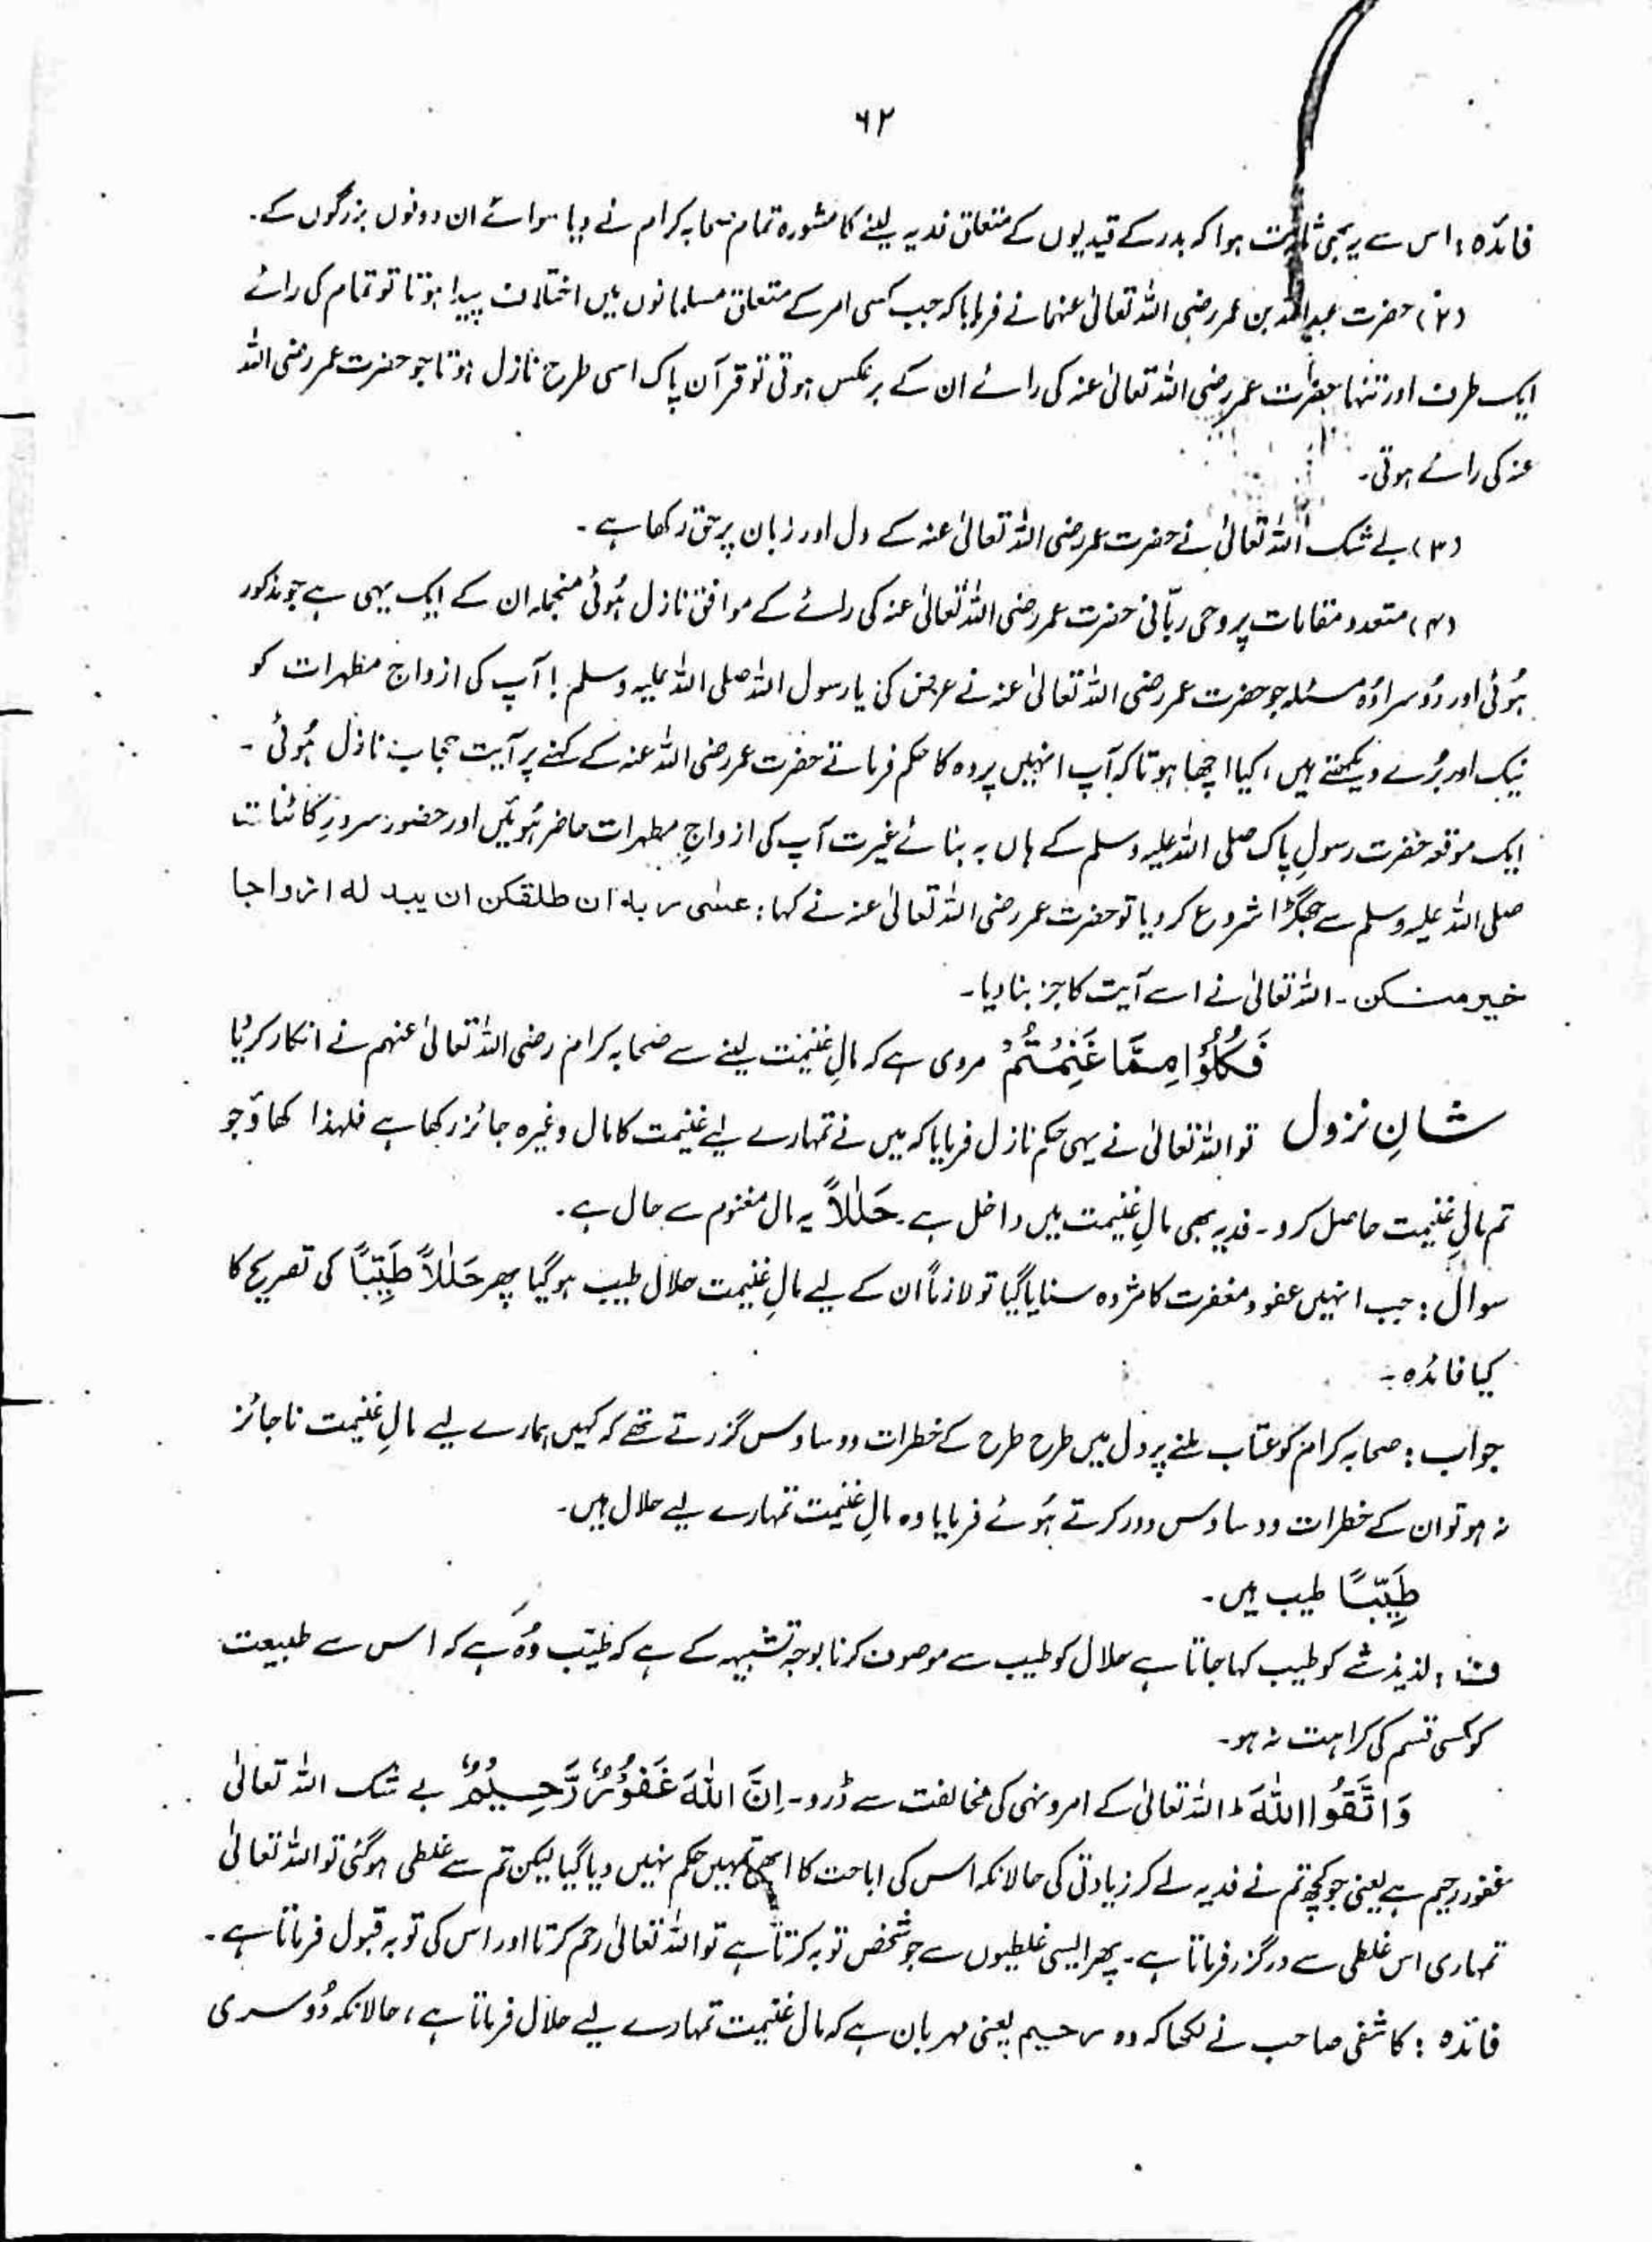 ۶۲
فائدہ : اس سے یہ بھی ثابت ہوا کہ بدر کے قیدیوں کے متعلق فدیہ لینے کا مشورہ تمام صحابہ کرام نے دیا سوائے ان دونوں بزرگوں کے۔
(۲) حضرت عبداللہ بن عمر رضی اللہ تعالیٰ عنہما نے فرمایا کہ جب کسی امر کے متعلق مسلمانوں میں اختلاف پیدا ہوتا تو تمام کی رائے
ایک طرف اور تنہا حضرت عمر رضی اللہ تعالیٰ عنہ کی رائے ان کے برعکس ہوتی تو قرآن پاک اسی طرح نازل ہوتا جو حضرت عمر رضی اللہ
عنہ کی رائے ہوتی۔
(۳) بے شک اللہ تعالیٰ نے حضرت عمر رضی اللہ تعالیٰ عنہ کے دل اور زبان پر حق رکھا ہے۔
(۴) متعدد مقامات پر وحی ربّانی حضرت عمر رضی اللہ تعالیٰ عنہ کی رائے کے موافق نازل ہُوئی منجملہ ان کے ایک یہی ہے جو مذکور
ہُوئی اور دُوسرا وُہ مسئلہ جو حضرت عمر رضی اللہ تعالیٰ عنہ نے عرض کی یا رسول اللہ صلی اللہ علیہ وسلم ! آپ کی ازواج مطہرات کو
نیک اور بُرے دیکھتے ہیں ، کیا اچھا ہوتا کہ آپ انہیں پردہ کا حکم فرماتے حضرت عمر رضی اللہ عنہ کے کہنے پر آیت حجاب نازل ہُوئی۔
ایک موقعہ حضرت رسولِ پاک صلی اللہ علیہ وسلم کے ہاں بہ بنائے غیرت آپ کی ازواجِ مطہرات حاضر ہُوئیں اور حضور سرورِ کائنات
صلی اللہ علیہ وسلم سے جھگڑا شروع کر دیا تو حضرت عمر رضی اللہ تعالیٰ عنہ نے کہا : عسٰی ربہ ان طلقکن ان یبدلہ ازواجا
خیر منکن۔ اللہ تعالیٰ نے اسے آیت کا جز بنا دیا۔
فَكُلُوْا مِمَّا غَنِمْتُمْ مروی ہے کہ مالِ غنیمت لینے سے صحابہ کرام رضی اللہ تعالیٰ عنہم نے انکار کر دیا
شانِ نزول تو اللہ تعالیٰ نے یہی حکم نازل فرمایا کہ میں نے تمہارے لیے غنیمت کا مال وغیرہ جائز رکھا ہے فلہذا کھاؤ جو
تم مالِ غنیمت حاصل کرو۔ فدیہ بھی مالِ غنیمت میں داخل ہے۔ حَلٰلاً یہ مال مغنوم سے حال ہے۔
سوال : جب انہیں عفو و مغفرت کا مژدہ سنایا گیا تو لازماً ان کے لیے مالِ غنیمت حلال طیب ہو گیا پھر حَلٰلاً طَیِّبًا کی تصریح کا
کیا فائدہ ۔
جواب : صحابہ کرام کو عتاب ملنے پر دل میں طرح طرح کے خطرات و وساوس گزرتے تھے کہ کہیں ہمارے لیے مالِ غنیمت ناجائز
نہ ہو تو ان کے خطرات و وساوس دور کرتے ہُوئے فرمایا وہ مالِ غنیمت تمہارے لیے حلال ہیں۔
طَیِّبًا طیب ہیں۔
ف : لذیذ شے کو طیب کہا جاتا ہے حلال کو طیب سے موصوف کرنا بوجہ تشبیہ کے ہے کہ طیّب وُہ ہے کہ اس سے طبیعت
کو کسی قسم کی کراہت نہ ہو۔
وَاتَّقُوا اللّٰهَ ؕ اللہ تعالیٰ کے امر و نہی کی مخالفت سے ڈرو۔ اِنَّ اللّٰهَ غَفُوْرٌ رَّحِیْمٌ بے شک اللہ تعالیٰ
غفور رحیم ہے یعنی جو کچھ تم نے فدیہ لے کر زیادتی کی حالانکہ اس کی اباحت کا ابھی تمہیں حکم نہیں دیا گیا لیکن تم سے غلطی ہو گئی تو اللہ تعالیٰ
تمہاری اس غلطی سے درگزر فرماتا ہے۔ پھر ایسی غلطیوں سے جو شخص توبہ کرتا ہے تو اللہ تعالیٰ رحم کرتا اور اس کی توبہ قبول فرماتا ہے۔
فائدہ : کاشفی صاحب نے لکھا کہ وہ رحیم یعنی مہربان ہے کہ مال غنیمت تمہارے لیے حلال فرماتا ہے ، حالانکہ دُوسری